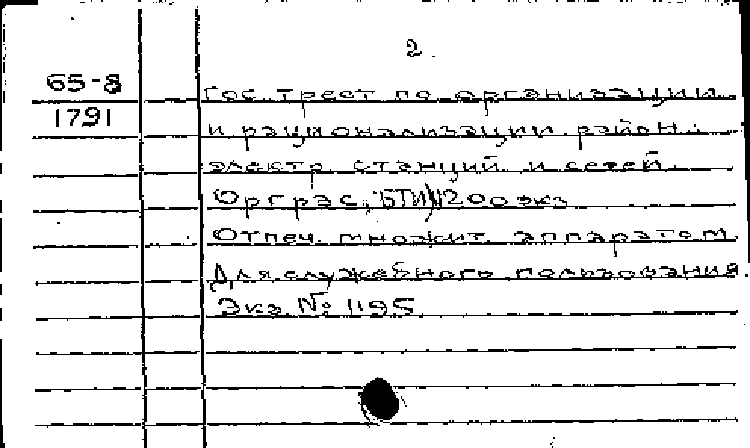 2.
65-8
1791
Гос. трест по организации
и рационализации район.
электр. станций и сетей
Оргрэс, БТИ, 1200 экз
Отпеч. множит. аппаратом
Для служебного пользования.
Экз. № 1195